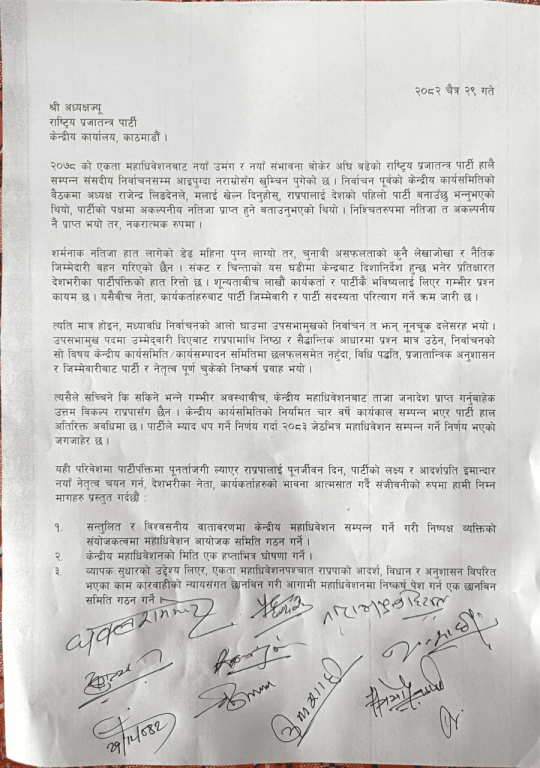 २०८२ चैत्र २९ गते
श्री अध्यक्षज्यू
राष्ट्रिय प्रजातन्त्र पार्टी
केन्द्रीय कार्यालय, काठमाडौं ।
२०७८ को एकता महाधिवेशनबाट नयाँ उमंग र नयाँ संभावना बोकेर अघि बढेको राष्ट्रिय प्रजातन्त्र पार्टी हालै
सम्पन्न संसदीय निर्वाचनसम्म आइपुग्दा नराम्रोसंग खुम्चिन पुगेको छ । निर्वाचन पूर्वको केन्द्रीय कार्यसमितिको
बैठकमा अध्यक्ष राजेन्द्र लिङदेनले, मलाई खेल्न दिनुहोस्, राप्रपालाई देशको पहिलो पार्टी बनाउँछु भन्नुभएको
थियो, पार्टीको पक्षमा अकल्पनीय नतिजा प्राप्त हुने बताउनुभएको थियो । निश्चितरुपमा नतिजा त अकल्पनीय
नै प्राप्त भयो तर, नकरात्मक रुपमा ।
शर्मनाक नतिजा हात लागेको डेढ महिना पुग्न लाग्यो तर, चुनावी असफलताको कुनै लेखाजोखा र नैतिक
जिम्मेदारी बहन गरिएको छैन । संकट र चिन्ताको यस घडीमा केन्द्रबाट दिशानिर्देश हुन्छ भनेर प्रतिक्षारत
देशभरीका पार्टीपंक्तिको हात रित्तो छ । शून्यताबीच लाखौं कार्यकर्ता र पार्टीकै भविष्यलाई लिएर गम्भीर प्रश्न
कायम छ । यसैबीच नेता, कार्यकर्ताहरुबाट पार्टी जिम्मेवारी र पार्टी सदस्यता परित्याग गर्ने क्रम जारी छ ।
त्यति मात्र होइन, मध्यावधि निर्वाचनको आलो घाउमा उपसभामुखको निर्वाचन त झन् नूनचूक दलेसरह भयो ।
उपसभामुख पदमा उम्मेदबारी दिएबाट राप्रपामाथि निष्ठा र सैद्धान्तिक आधारमा प्रश्न मात्र उठेन, निर्वाचनको
सो विषय केन्द्रीय कार्यसमिति/कार्यसम्पादन समितिमा छलफलसमेत नहुँदा, विधि पद्धति, प्रजातान्त्रिक अनुशासन
र जिम्मेवारीबाट पार्टी र नेतृत्व पूर्ण चुकेको निष्कर्ष प्रवाह भयो ।
त्यसैले सच्चिने कि सकिने भन्ने गम्भीर अवस्थाबीच, केन्द्रीय महाधिवेशनबाट ताजा जनादेश प्राप्त गर्नुबाहेक
उत्तम विकल्प राप्रपासँग छैन । केन्द्रीय कार्यसमितिको नियमित चार वर्षे कार्यकाल सम्पन्न भएर पार्टी हाल
अतिरिक्त अवधिमा छ । पार्टीले म्याद थप गर्ने निर्णय गर्दा २०८३ जेठभित्र महाधिवेशन सम्पन्न गर्ने निर्णय भएको
जगजाहेर छ ।
यही परिवेशमा पार्टीपंक्तिमा पूनर्ताजगी ल्याएर राप्रपालाई पूनर्जीवन दिन, पार्टीको लक्ष्य र आदर्शप्रति इमान्दार
नयाँ नेतृत्व चयन गर्न, देशभरीका नेता, कार्यकर्ताहरुको भावना आत्मसात गर्दै संजीवनीको रुपमा हामी निम्न
मागहरु प्रस्तुत गर्दछौं :
१. सन्तुलित र विश्वसनीय वातावरणमा केन्द्रीय महाधिवेशन सम्पन्न गर्ने गरी निष्पक्ष व्यक्तिको
संयोजकत्वमा महाधिवेशन आयोजक समिति गठन गर्ने ।
२. केन्द्रीय महाधिवेशनको मिति एक हप्ताभित्र घोषणा गर्ने ।
३. व्यापक सुधारको उद्देश्य लिएर, एकता महाधिवेशनपश्चात राप्रपाको आदर्श, विधान र अनुशासन विपरित
भएका काम कारवाहीको न्यायसंगत छानबिन गरी आगामी महाधिवेशनमा निष्कर्ष पेश गर्न एक छानबिन
समिति गठन गर्ने ।